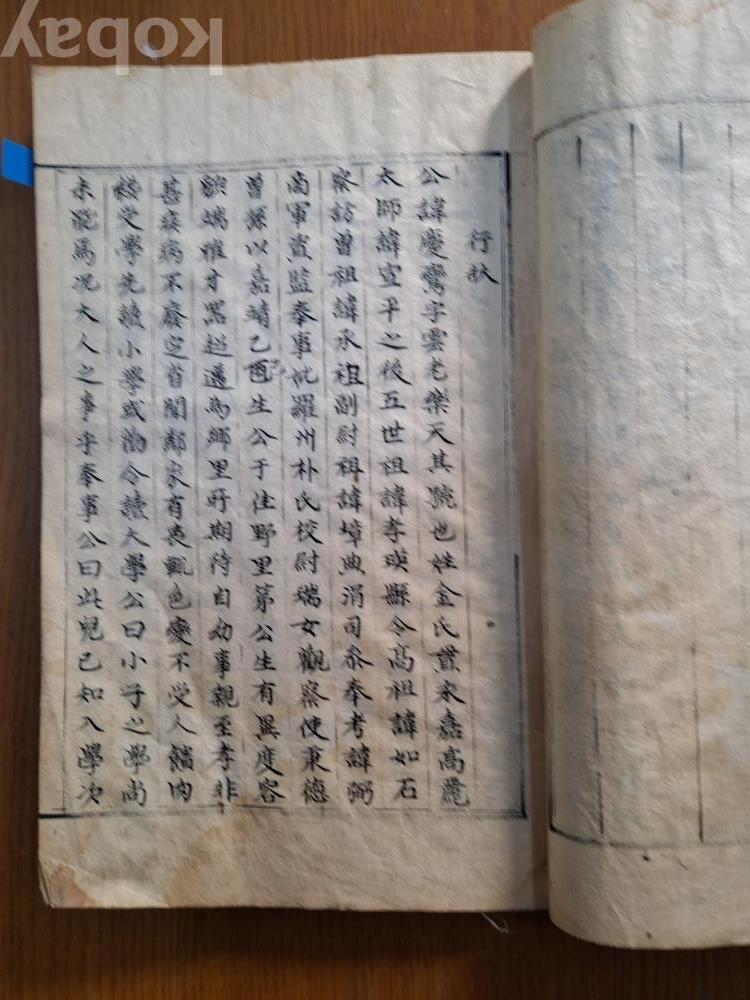 kobay
行狀
公諱慶鸞字雲老樂天其號也姓金氏貫永嘉高麗
太師諱宣平之後五世祖諱孝瑛縣令高祖諱如石
察訪曾祖諱承祖副尉祖諱埻典涓司參奉考諱弼
南軍資監奉事妣羅州朴氏校尉端女觀察使秉德
曾孫以嘉靖乙酉生公于佳野里第公生有異度容
貌端雅才器超邁爲鄉里所期待自幼事親至孝非
甚疾病不廢定省聞鄰家有喪輒色變不受人饋肉
從受學先讀小學或勸令讀大學公曰小子之學尚
未能焉况大人之事乎奉事公曰此兒已知入學次